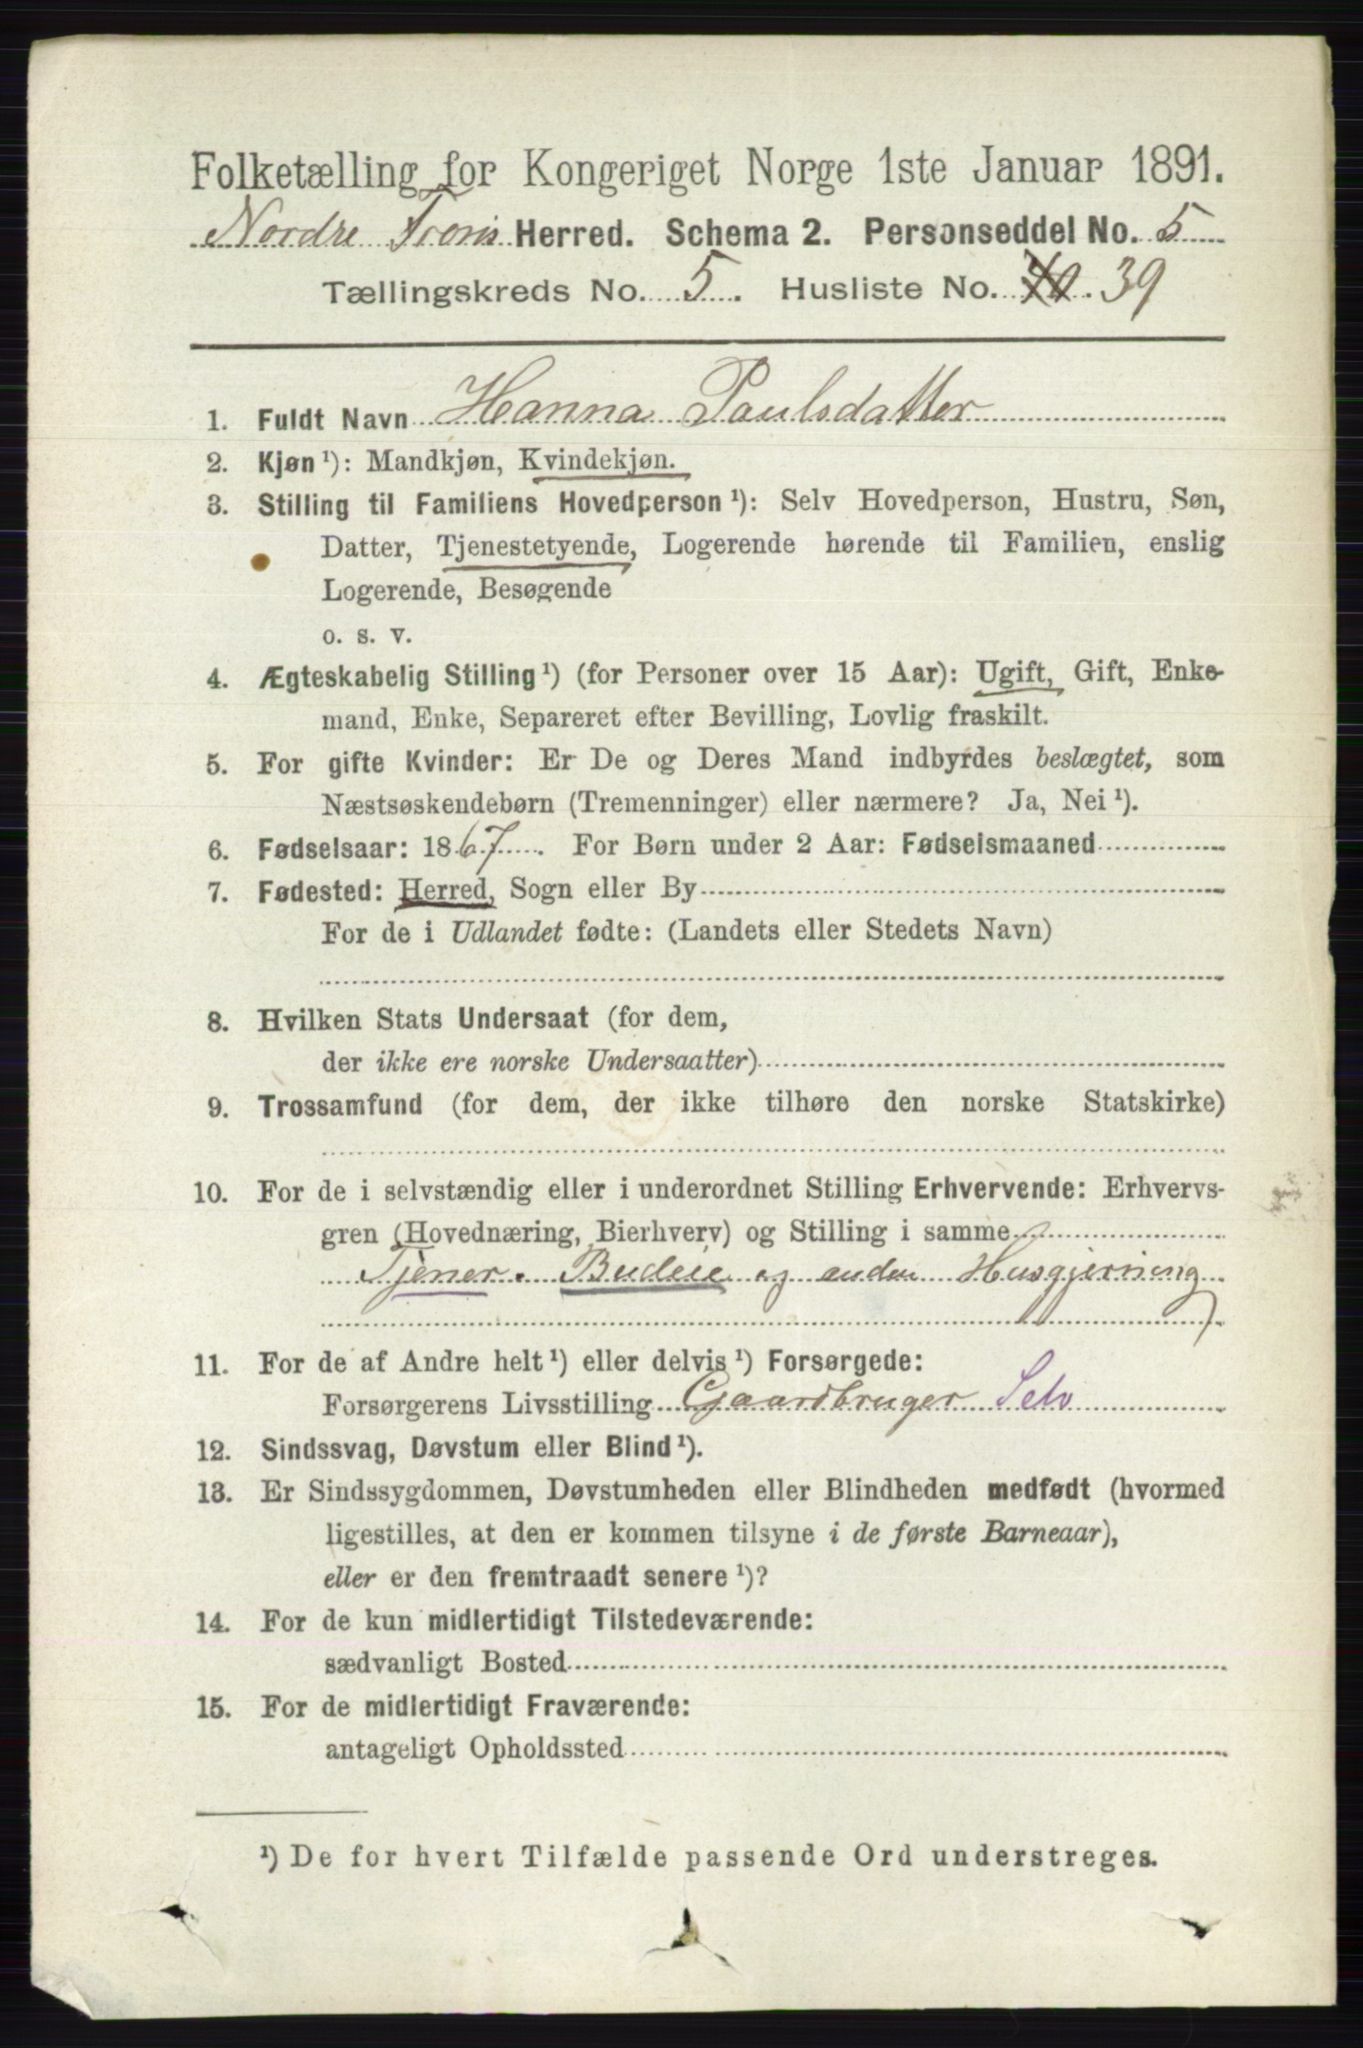 Folketælling for Kongeriget Norge 1ste Januar 1891.
Nordre Frons Herred. Schema 2. Personseddel No. 5
Tællingskreds No. 5. Husliste No. 40. 39
1. Fuldt Navn Hanna Paulsdatter
2. Kjøn ¹): Mandkjøn, Kvindekjøn.
3. Stilling til Familiens Hovedperson ¹): Selv Hovedperson, Hustru, Søn,
Datter, Tjenestetyende, Logerende hørende til Familien, enslig
Logerende, Besøgende
o. s. v.
4. Ægteskabelig Stilling ¹) (for Personer over 15 Aar): Ugift, Gift, Enke-
mand, Enke, Separeret efter Bevilling, Lovlig fraskilt.
5. For gifte Kvinder: Er De og Deres Mand indbyrdes beslægtet, som
Næstsøskendebørn (Tremenninger) eller nærmere? Ja, Nei ¹).
6. Fødselsaar: 1867. For Børn under 2 Aar: Fødselsmaaned
7. Fødested: Herred, Sogn eller By
For de i Udlandet fødte: (Landets eller Stedets Navn)
8. Hvilken Stats Undersaat (for dem,
der ikke ere norske Undersaatter)
9. Trossamfund (for dem, der ikke tilhøre den norske Statskirke)
10. For de i selvstændig eller i underordnet Stilling Erhvervende: Erhvervs-
gren (Hovednæring, Bierhverv) og Stilling i samme
Tjener. Budeie og anden Husgjerning
11. For de af Andre helt ¹) eller delvis ¹) Forsørgede:
Forsørgerens Livsstilling Gaardbruger Selv
12. Sindssvag, Døvstum eller Blind ¹).
13. Er Sindssygdommen, Døvstumheden eller Blindheden medfødt (hvormed
ligestilles, at den er kommen tilsyne i de første Barneaar),
eller er den fremtraadt senere ¹)?
14. For de kun midlertidigt Tilstedeværende:
sædvanligt Bosted
15. For de midlertidigt Fraværende:
antageligt Opholdssted
¹) De for hvert Tilfælde passende Ord understreges.